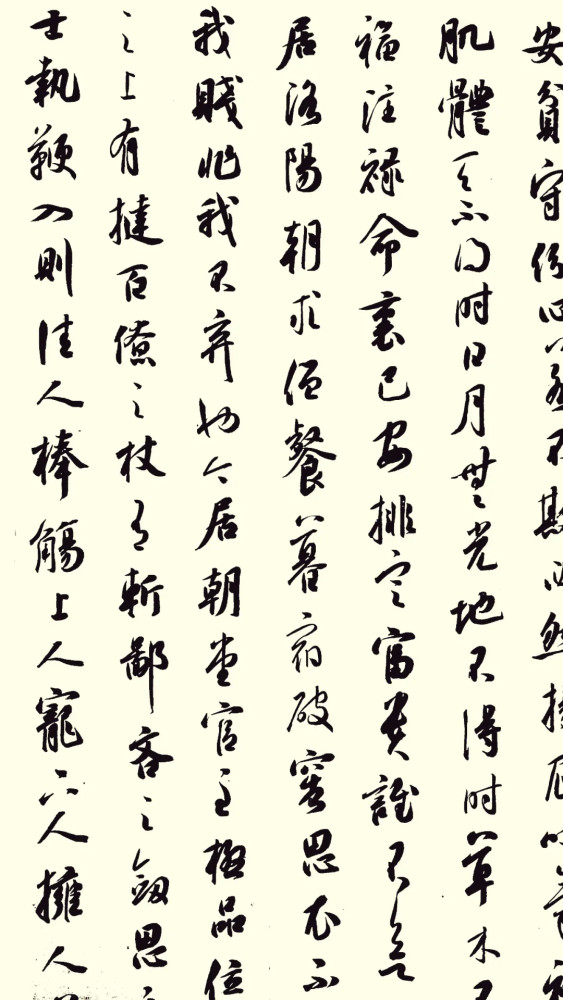 安貧守份心若不欺必然揚眉吐氣初
肌體天不得時日月無光地不得時草木不
福注祿命裏已安排定富貴誰不欲
居洛陽朝求僧餐暮宿破窰思衣不
我賤非我不棄也今居朝堂官至極品位
之上有撻百僚之杖有斬鄙吝之劍思
士執鞭入則佳人捧觴上人寵下人擁人